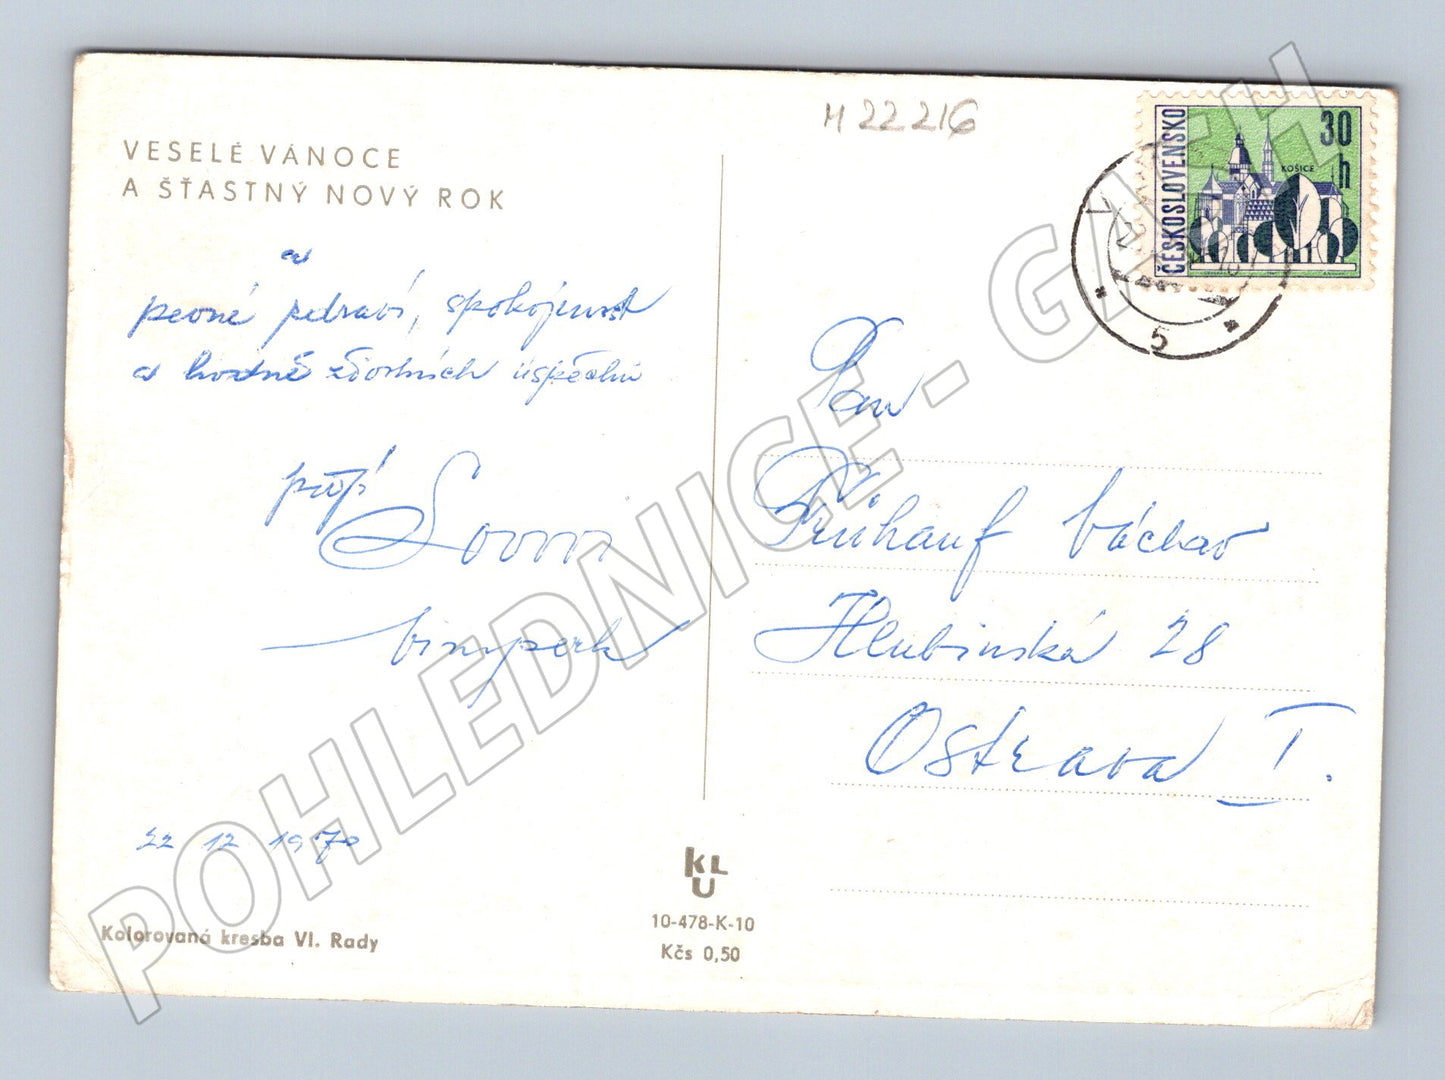 M 22216
VESELÉ VÁNOCE
A ŠŤASTNÝ NOVÝ ROK
a
pevné zdraví, spokojenost
a hodně životních úspěchů
přejí
Vimperk
22 12 1970
Kolorovaná kresba Vl. Rady
KLU
10-478-K-10
Kčs 0,50
ČESKOSLOVENSKO
30 h
KOŠICE
5
Pan
Frühauf Václav
Hlubinská 28
Ostrava I.
POHLEDNICE - GASH